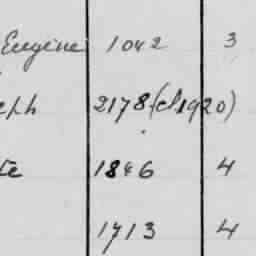 Eugène 1042 3
eph 2178 (cl 1920)
te 1846 4
1713 4